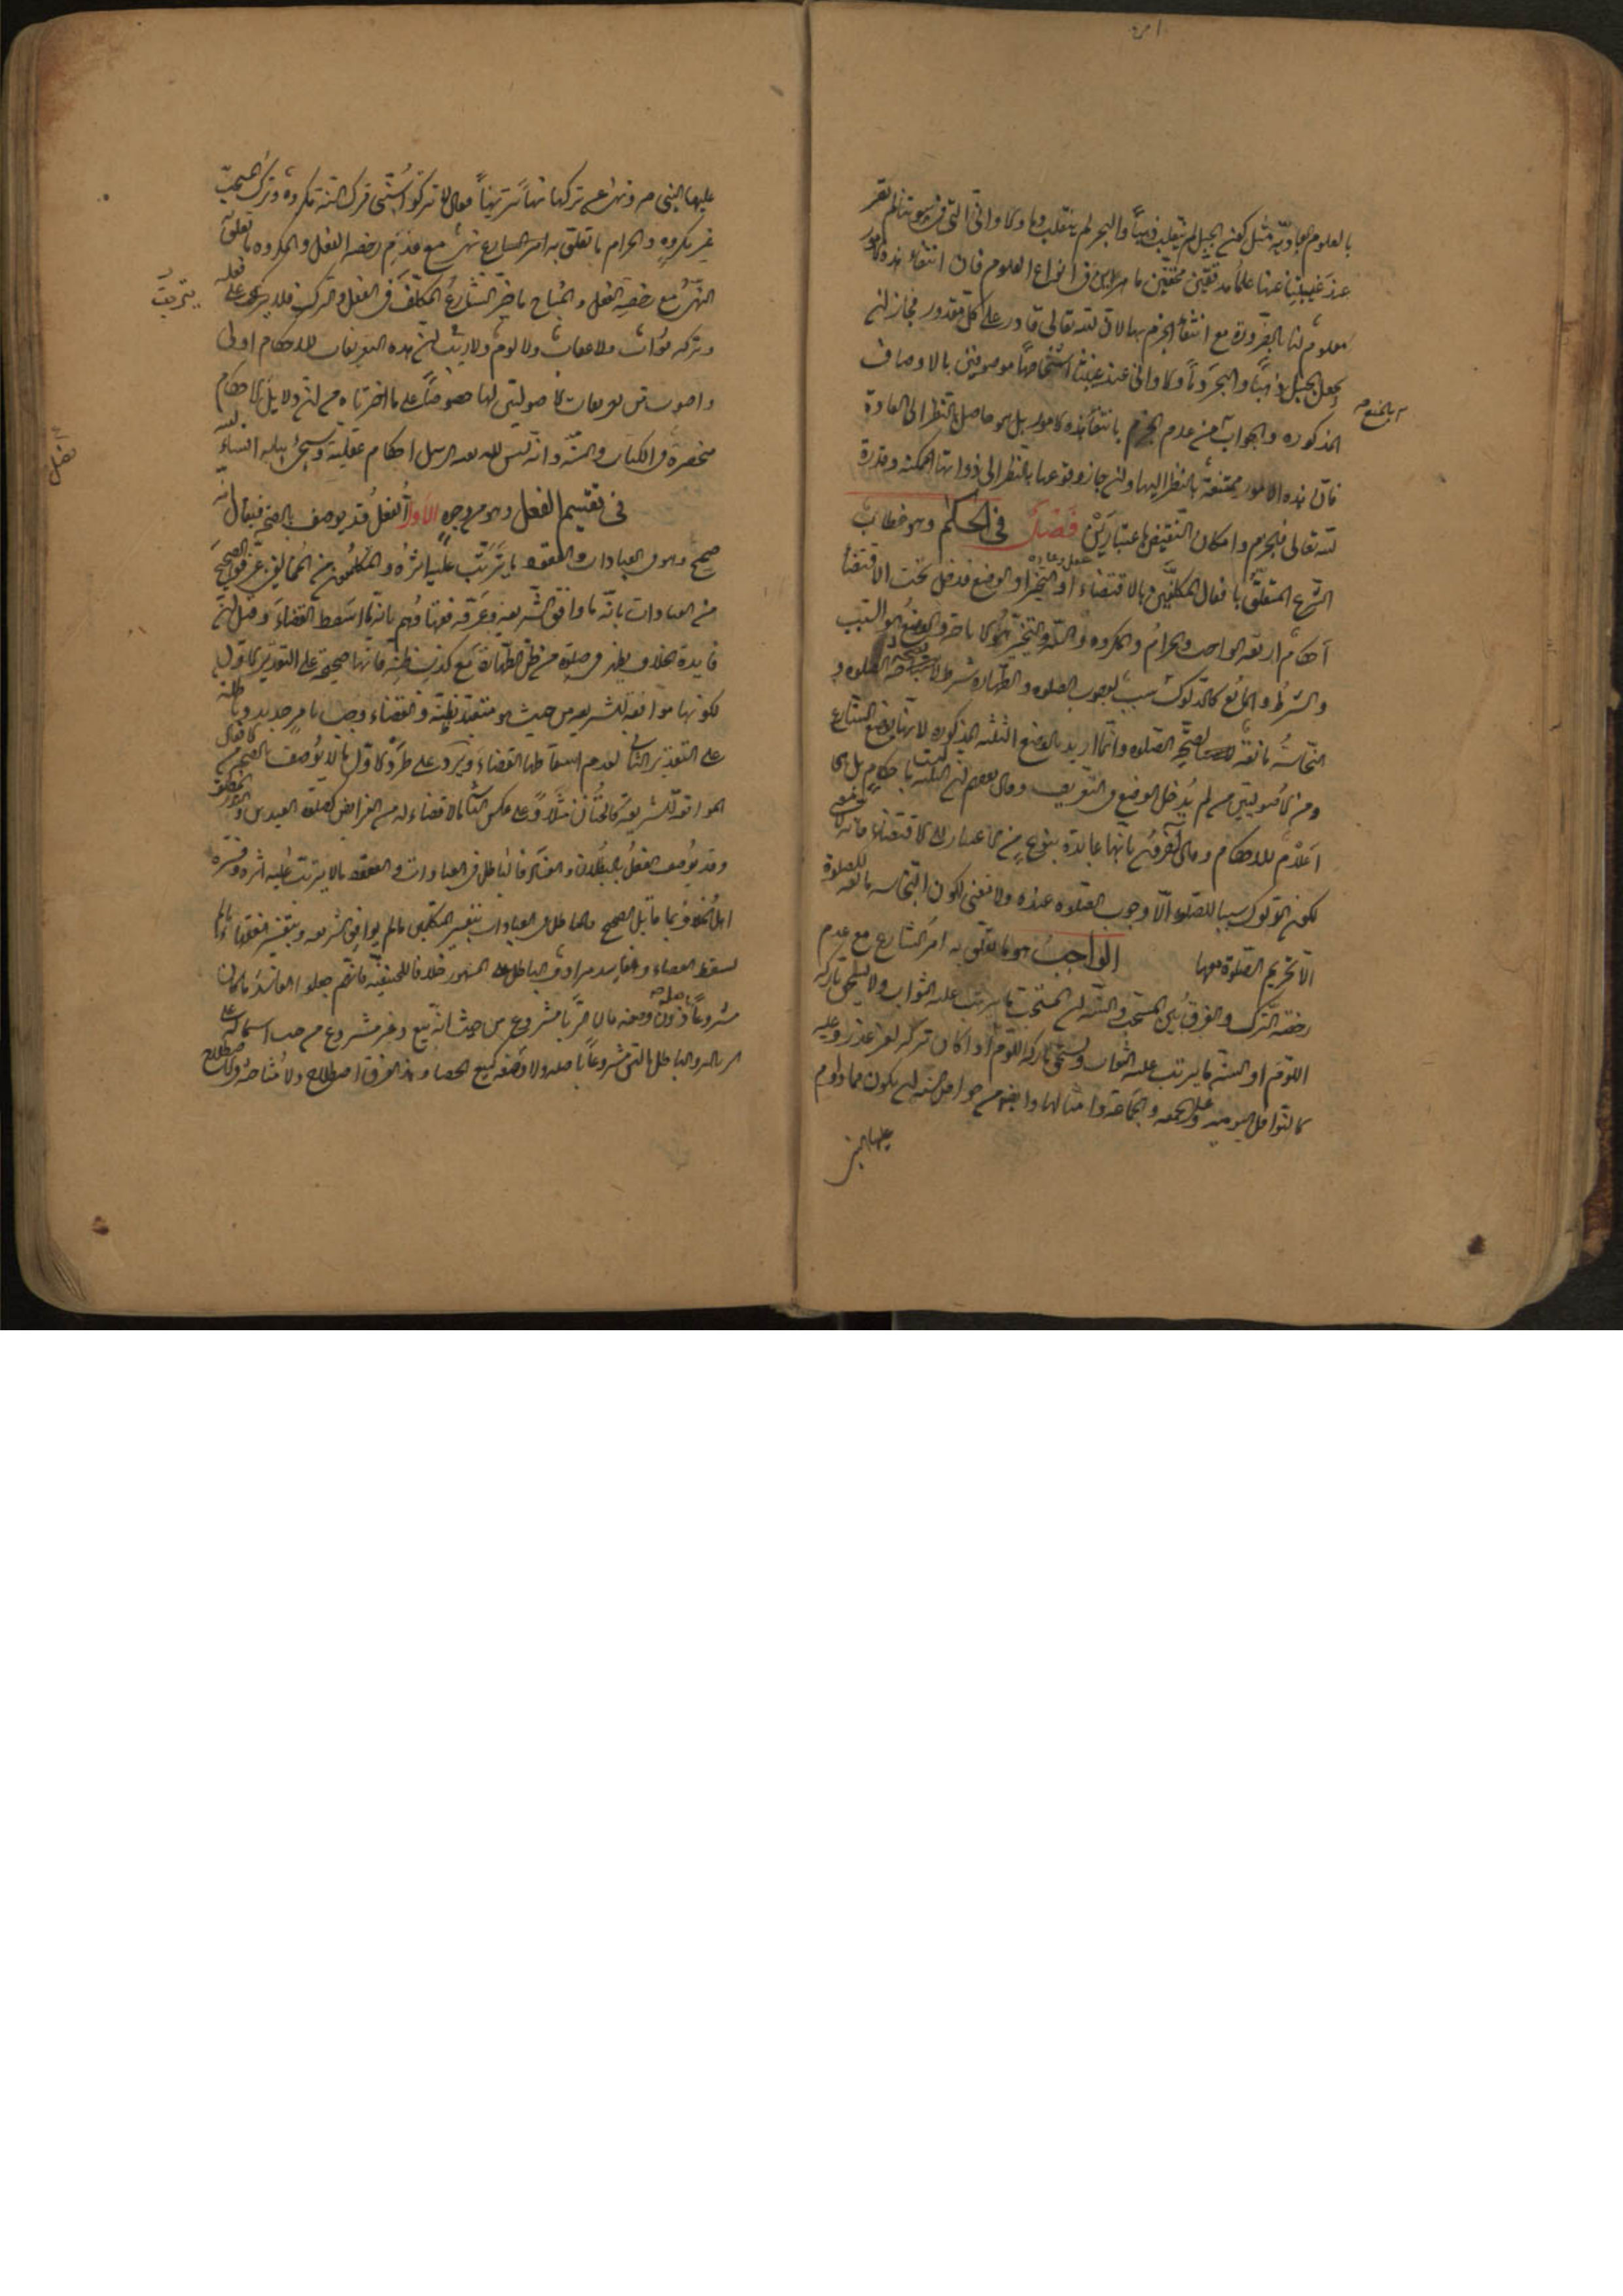 بالعلوم العاديّة مثل كون الجبل لم ينقلب ذهباً والبحر لم ينقلب دماً وكالاوانى التى فى بيوتنا لم تصر
عند غيبتنا عنها علماء مدققين محققين ماهرين فى انواع العلوم فان انتفاء هذه الامور
معلوم لنا بالضرورة مع انتفاء الجزم بها لان الله تعالى قادر على كل مقدور فجاز ان
يجعل الجبل ذهباً والبحر دماً وكالاوانى عند غيبتنا اشخاصاً موصوفين بالاوصاف
المذكورة والجواب من عدم الجزم بانتفاء هذه الامور بل هو حاصل بالنظر الى العادة
بالمنع
فان هذه الامور ممتنعة بالنظر اليها وان جاز وقوعها بالنظر الى ذواتها الممكنة وقدرة
الله تعالى فالجزم وامكان النقيض باعتبارين فصل فى الحكم وهو خطاب
الشرع المتعلق بافعال المكلفين بالاقتضاء او التخيير او الوضع فدخل تحت الاقتضاء
احكام اربعة الواجب والحرام والمكروه والسنة والتخيير هو الاباحة والوضع هو السبب
والشرط والمانع كالدلوك سبب لوجوب الصلوة والطهارة شرط لصحة الصلوة و
النجاسة مانعة لصحة الصلوة وانما اريد بالوضع الثلثة المذكورة لانها بوضع الشارع
ومن الاصوليين من لم يدخل الوضع فى التعريف وقال بعضهم ان الثلثة ليست باحكام بل هى
اعلام للاحكام وقال آخرون بانها عايدة بنوع من الاعتبار الى الاقتضاء فانه لا معنى
لكون الدلوك سببا للصلوة الّا وجوب الصلوة عنده ولا معنى لكون النجاسة مانعة للصلوة
الّا تحريم الصلوة معها الواجب هو ما تعلق به امر الشارع مع عدم
رخصة الترك والفرق بين المستحب والسنة ان المستحب ما يترتب عليه الثواب ولا يستحق تاركه
اللوم او السنة ما يترتب عليه الثواب ويستحق تاركه اللوم اذا كان تركه لغير عذر وعليه
كالنوافل اليومية وغسل الجمعة والجماعة وامثالها وايضا من خواص السنة ان يكون مما داوم
عليها النبى
عليها النبى ص ونهى عن تركها نهياً تنزيهياً فقال لا تتركوا سنتى فترك السنة مكروه وترك المستحب
غير مكروه والحرام ما تعلق به امر الشارع نهى مع عدم رخصة الفعل والمكروه ما تعلق
النهى مع رخصة الفعل والمباح ما خير الشارع المكلف فى الفعل والترك فلا يترتب على فعله
وتركه ثواب ولا عقاب ولا لوم ولا ريب ان هذه التعريفات للاحكام اولى
واصوب من تعريفات الاصوليين لها خصوصاً على ما اخترناه من ان دلايل الاحكام
منحصرة فى الكتاب والسنة وانه ليس لله بعد الرسل احكام عقلية وسيجئ بيانه انشاء الله
فصل
فى تقسيم الفعل وهو من وجوه الاول الفعل قد يوصف بالصحة فيقال انه
صحيح وهو فى العبادات والعقود ما يترتب عليه اثره والمتكلمون من المخالفين عرفوا الصحيح
من العبادات بانه ما وافق الشريعة وعرفه فقهاؤهم بانه ما اسقط القضاء وقيل ان
فايدة الخلاف يظهر فى صلوة من ظن الطهارة مع كذب ظنه فانها صحيحة على التقدير الاول
لكونها موافقة للشريعة من حيث هو متعبد بظنه والقضاء وجب بامر جديد وباطلة
على التقدير الثانى لعدم اسقاطها القضاء ويرد على طرد الاول ما لا يوصف بالصحة من الافعال
الموافقة للشريعة كالختان مثلاً وعلى عكس الثانى ما لا قضاء له من الفرايض كصلوة العيدين والنوافل
وقد يوصف الفعل بالبطلان والفساد فالباطل فى العبادات والعقود ما لا يترتب عليه اثره وفسره
اهل الخلاف بما قابل الصحيح فالباطل فى العبادات بتفسير المتكلمين ما لم يوافق الشريعة وبتفسير الفقهاء ما لم
يسقط القضاء والفاسد مرادف الباطل على المشهور خلافا للحنفية فانهم جعلوا الفاسد ما كان
مشروعاً باصله دون وصفه كالربا فانه مشروع من حيث انه بيع وغير مشروع من حيث اشتماله على
الزيادة والباطل ما ليس مشروعاً باصله ولا وصفه كبيع الحصاة وهذا الفرق اصطلاح ولا مشاحة فى الاصطلاح